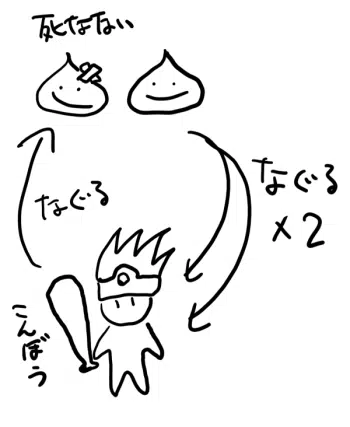 死なない
なぐる
なぐる
×2
こんぼう